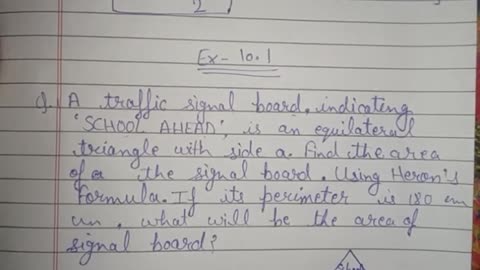 2
Ex - 10.1
Q. A traffic signal board, indicating
'SCHOOL AHEAD', is an equilateral
triangle with side a. Find the area
of a the signal board. Using Heron's
formula. If its perimeter is 180 cm
cm, what will be the area of
signal board?